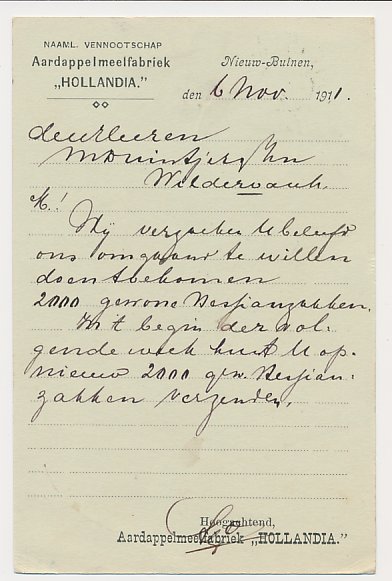 NAAML. VENNOOTSCHAP
Aardappelmeelfabriek
„HOLLANDIA.”
Nieuw-Buinen,
den 6 Nov. 1911.
den Heeren
W Duintjer Hzn
Wildervank.
M.!
Wij verzoeken U beleefd
ons omgaand te willen
doen toekomen
2000 gewone Hessianzakken.
In 't begin der vol-
gende week kunt U op-
nieuw 2000 gew. Hessian-
zakken verzenden.
Hoogachtend,
Aardappelmeelfabriek „HOLLANDIA.”